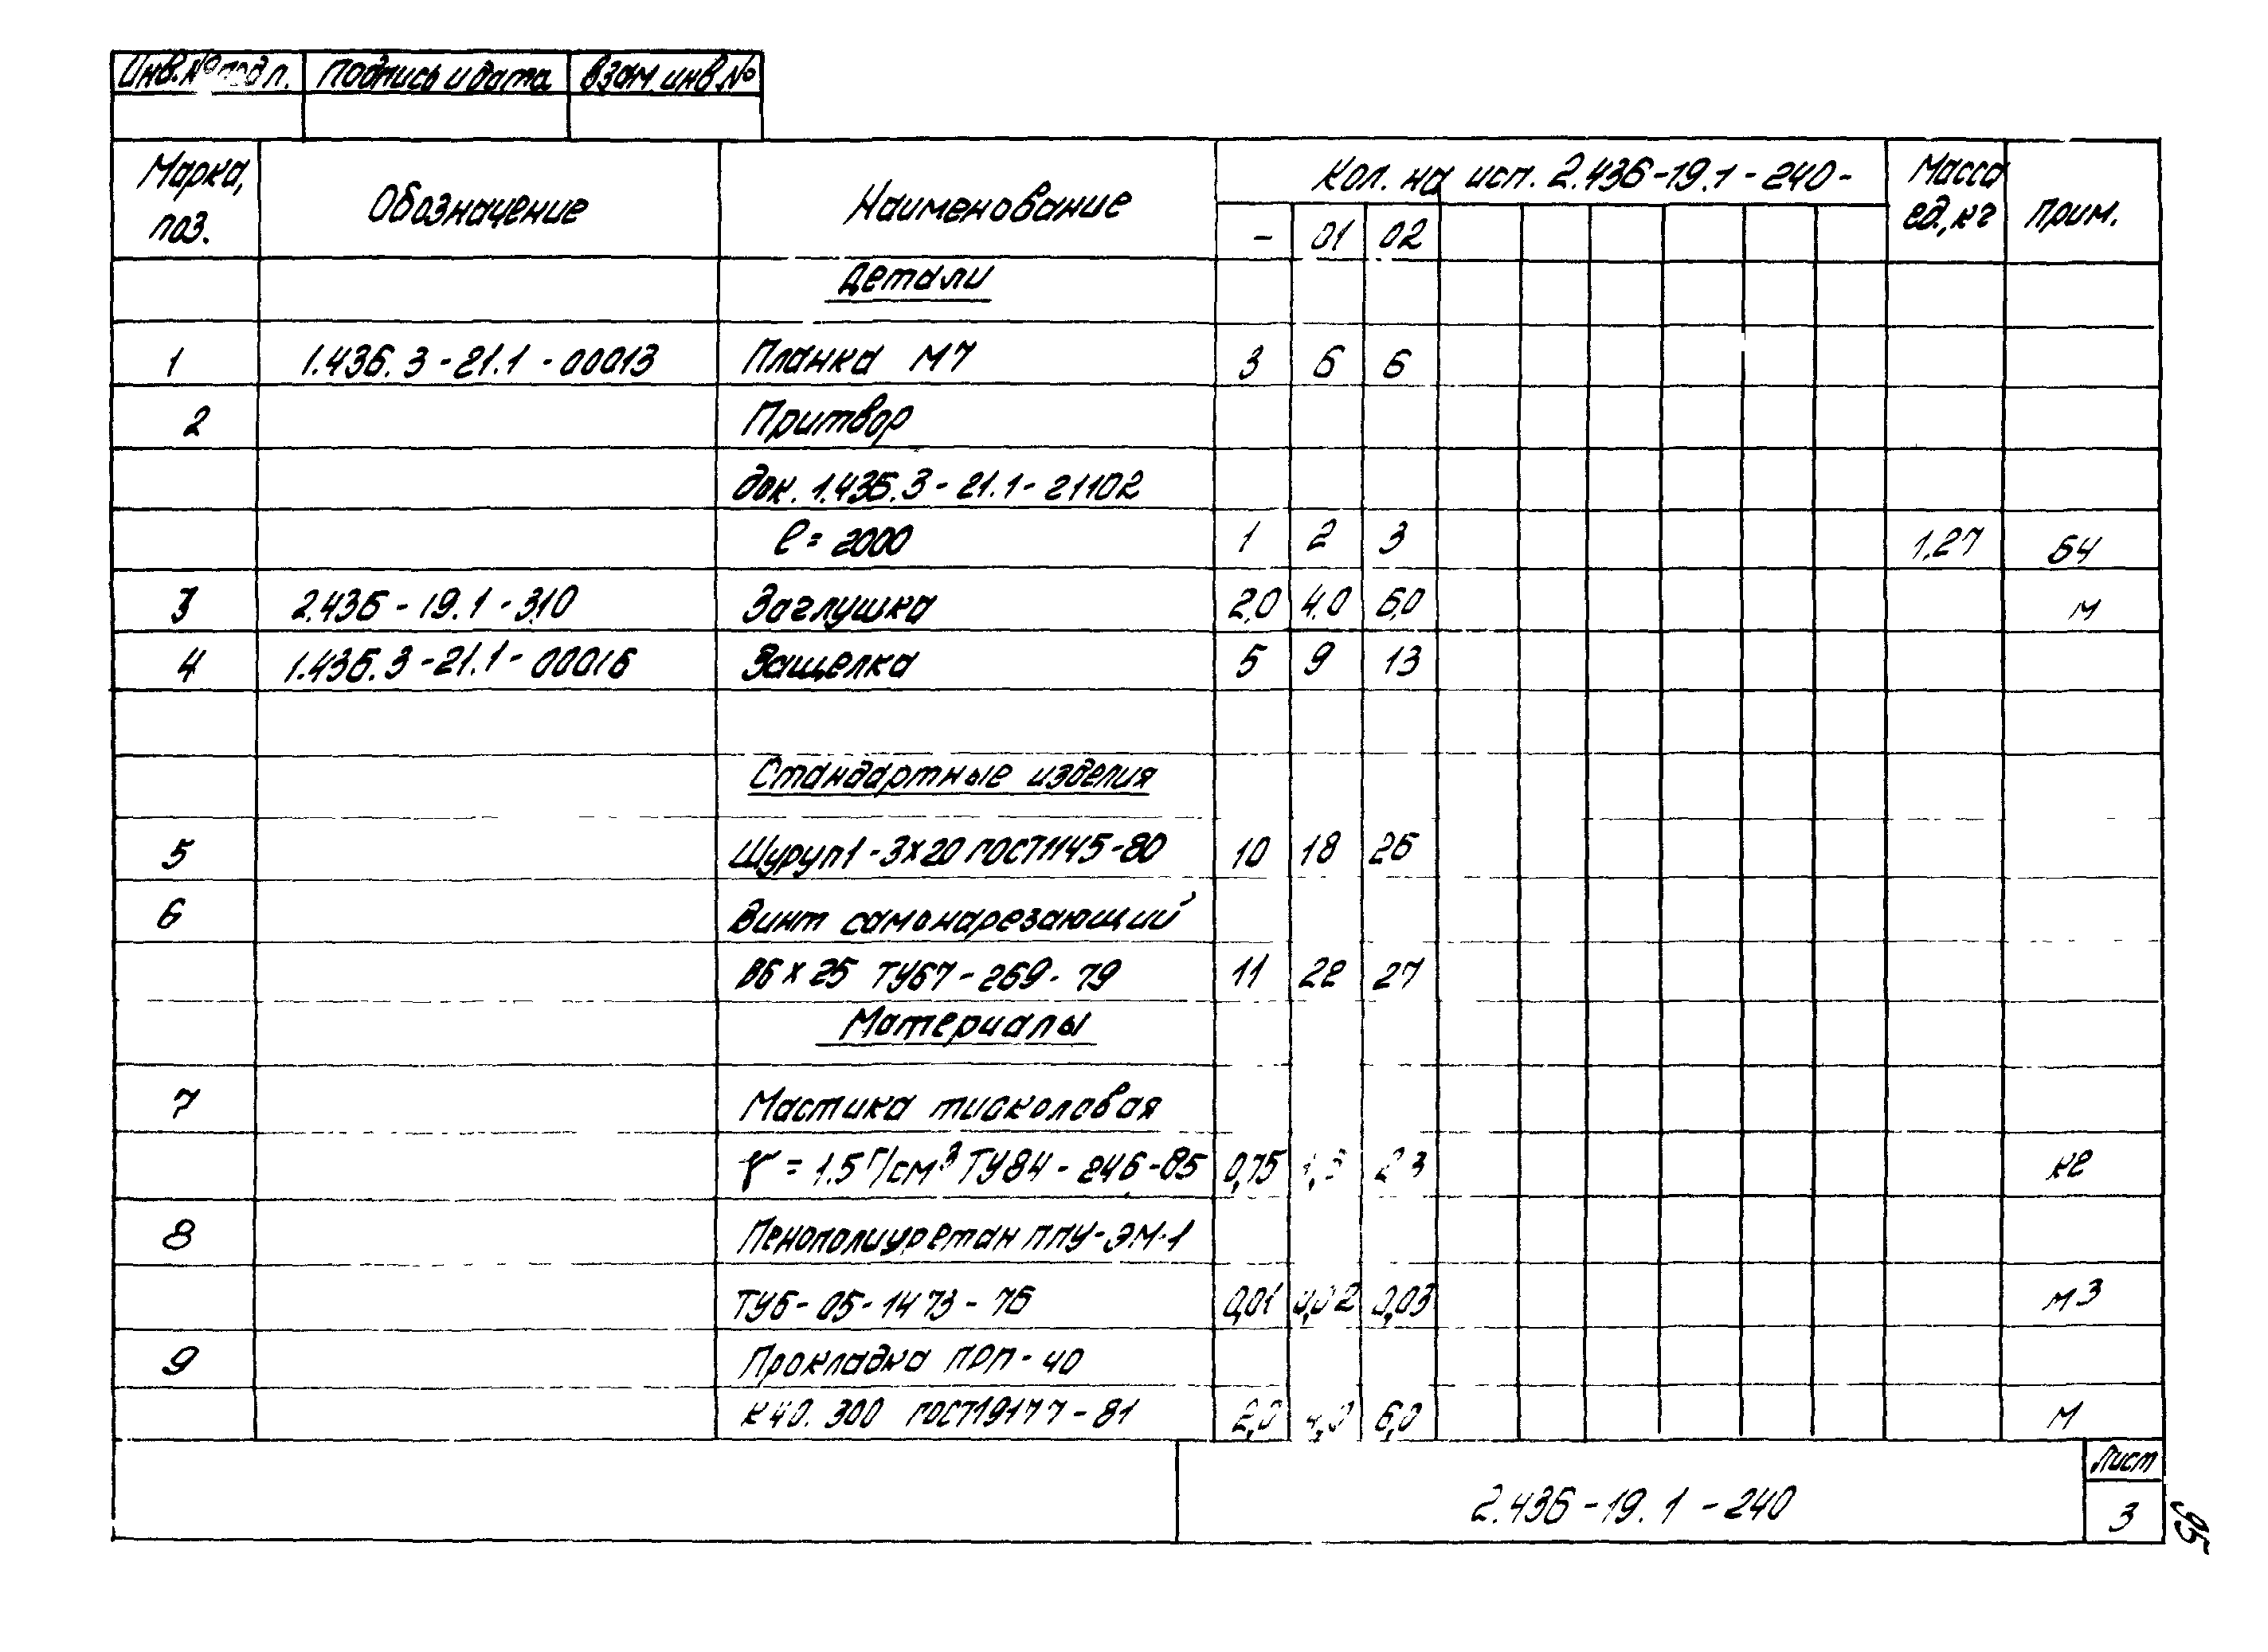 Инв.№ подл. Подпись и дата Взам. инв.№
Марка, поз. Обозначение Наименование Кол. на исп. 2.436-19.1-240- Масса ед., кг Прим.
- 01 02
Детали
1 1.436.3-21.1-00013 Планка М7 3 6 6
2 Притвор
док. 1.436.3-21.1-21102
ℓ=2000 1 2 3 1,27 БЧ
3 2.436-19.1-310 Заглушка 2,0 4,0 6,0 м
4 1.436.3-21.1-00016 Защелка 5 9 13
Стандартные изделия
5 Шуруп 1-3х20 ГОСТ 1145-80 10 18 26
6 Винт самонарезающий
В6х25 ТУ67-269-79 11 22 27
Материалы
7 Мастика тиоколовая
γ=1.5 г/см³ ТУ84-246-85 0,75 2,3 кг
8 Пенополиуретан ППУ-ЭМ-1
ТУ6-05-1473-76 0,01 0,02 0,03 м3
9 Прокладка ПРП-40
К40.300 ГОСТ 19177-81 2,0 4,0 6,0 м
2.436-19.1-240 Лист
3
95